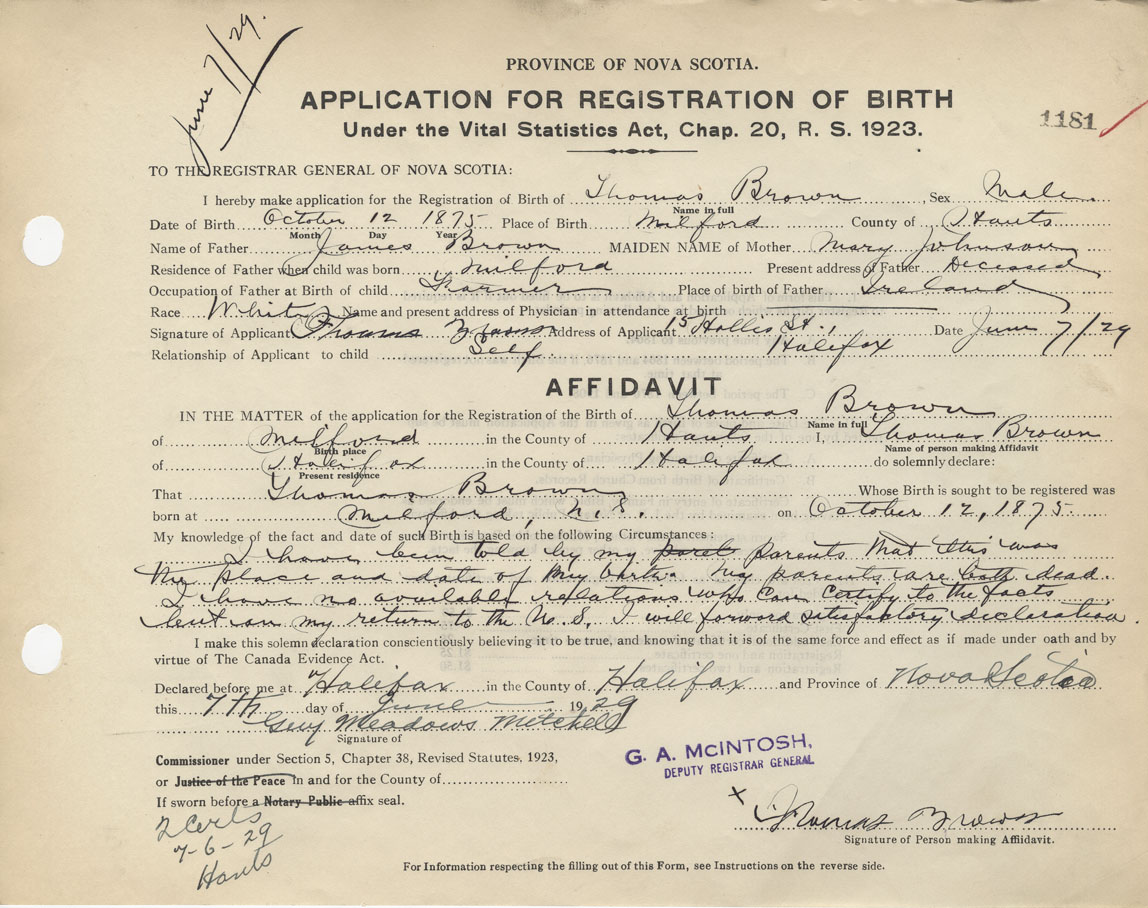 June 7/29.
PROVINCE OF NOVA SCOTIA.
APPLICATION FOR REGISTRATION OF BIRTH
Under the Vital Statistics Act, Chap. 20, R. S. 1923.
1181
TO THE REGISTRAR GENERAL OF NOVA SCOTIA:
I hereby make application for the Registration of Birth of Thomas Brown, Sex Male
Name in full
Date of Birth October 12 1875 Place of Birth Milford County of Hants
Month Day Year
Name of Father James Brown MAIDEN NAME of Mother Mary Johnson
Residence of Father when child was born Milford Present address of Father Deceased
Occupation of Father at Birth of child Farmer Place of birth of Father Ireland
Race White Name and present address of Physician in attendance at birth
Signature of Applicant Thomas Brown Address of Applicant 15 Hollis St., Date June 7/29
Relationship of Applicant to child Self Halifax
AFFIDAVIT
IN THE MATTER of the application for the Registration of the Birth of Thomas Brown
Name in full
of Milford in the County of Hants I, Thomas Brown
Birth place Name of person making Affidavit
of Halifax in the County of Halifax do solemnly declare:
Present residence
That Thomas Brown Whose Birth is sought to be registered was
born at Milford, N.S. on October 12, 1875
My knowledge of the fact and date of such Birth is based on the following Circumstances:
I have been told by my parets parents that this was
the place and date of my birth. My parents are both dead.
I have no available relations who can certify to the facts
but on my return to the N.S. I will forward satisfactory declaration.
I make this solemn declaration conscientiously believing it to be true, and knowing that it is of the same force and effect as if made under oath and by
virtue of The Canada Evidence Act.
Declared before me at Halifax in the County of Halifax and Province of Nova Scotia
this 7th day of June 1929
Guy Meadows Mitchell
Signature of
Commissioner under Section 5, Chapter 38, Revised Statutes, 1923,
or Justice of the Peace in and for the County of
If sworn before a Notary Public affix seal.
G. A. McINTOSH,
DEPUTY REGISTRAR GENERAL
2 Certs
7-6-29
Hants
x Thomas Brown
Signature of Person making Affiidavit.
For Information respecting the filling out of this Form, see Instructions on the reverse side.